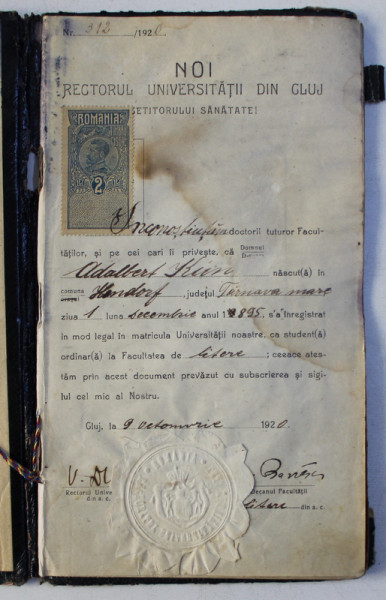 Nr. 312 /1920.
NOI
RECTORUL UNIVERSITĂȚII DIN CLUJ
CETITORULUI SĂNĂTATE!
ROMANIA
2
Incunoștiințăm doctorii tuturor Facul-
tăților, și pe cei cari îi privește, că Domnul
Adalbert născut(ă) în
comuna Hendorf, județul Târnava mare
ziua 1 luna Decembrie anul 1895, s'a înregistrat
în mod legal în matricula Universității noastre, ca student(ă)
ordinar(ă) la Facultatea de litere; ceeace ates-
tăm prin acest document prevăzut cu subscrierea și sigi-
lul cel mic al Nostru.
Cluj, la 9 octomvrie 1920.
Rectorul Univer
din a. c.
Decanul Facultății
litere din a. c.